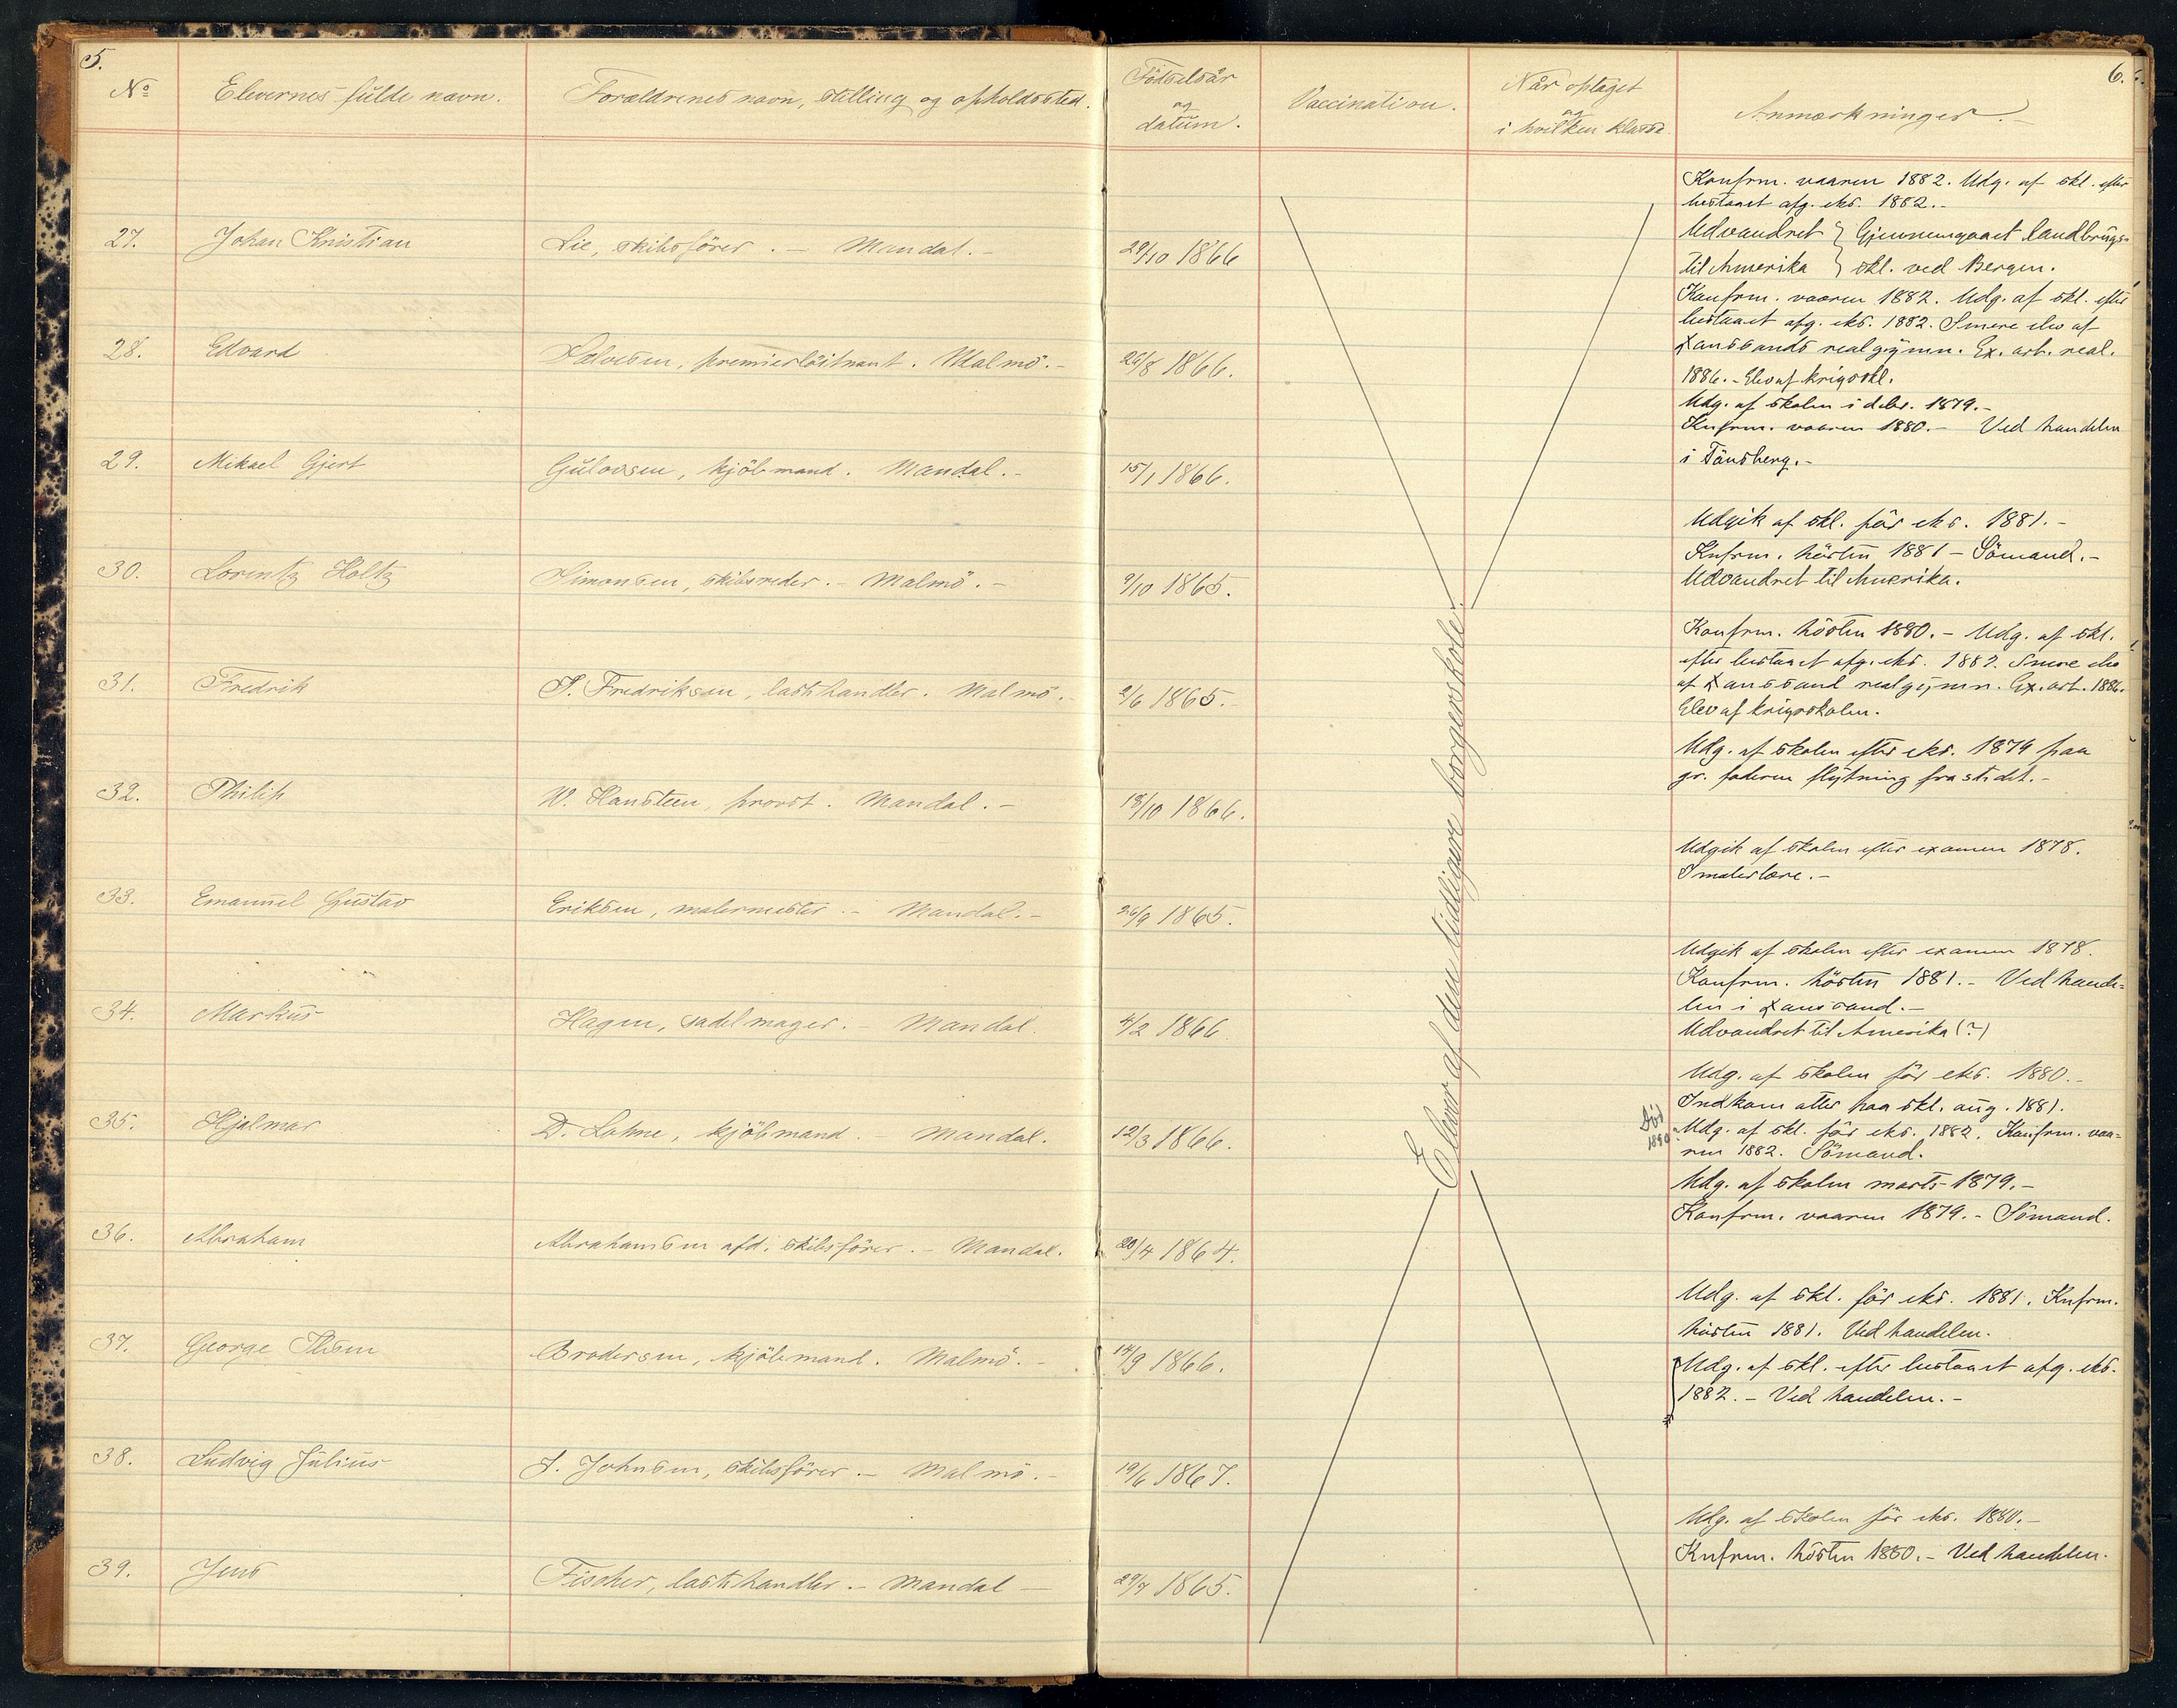 5.
No Elevernes fulde navn. Forældrenes navn, stilling og opholdssted.
27. Johan Kristian Lie, skibsförer. – Mandal. –
28. Edvard premierlöitnant. Malmö. –
29. Mikael Gjert Gulovsen, kjöbmand. Mandal. –
30. Lorentz Holtz Simonsen, skibsreder. – Malmö. –
31. Fredrik J. Fredriksen, lasthandler. Malmö. –
32. Philip W. Hansteen, provst. Mandal. –
33. Emanuel Gustav Eriksen, malermester. – Mandal. –
34. Markus Hagen, sadelmager. – Mandal.
35. Hjalmar D. Lohne, kjöbmand. – Mandal.
36. Abraham Abrahamsen afd. skibsförer. – Mandal.
37. George Brodersen, kjöbmand. Malmö. –
38. Ludvig Julius J. Johnsen, skibsförer. – Malmö. –
39. Jens Fischer, lasthandler. – Mandal –
6.
Födselsår og datum. Vaccination. Når optaget og i hvilken klasse. Anmærkninger. –
29/10 1866
26/8 1866.
15/1 1866.
9/10 1865.
2/6 1865. –
18/10 1866.
26/9 1865.
4/2 1866
12/3 1866.
20/4 1864.
14/9 1866.
19/6 1867.
29/7 1865.
Elever af den tidligere borgerskole.
Konfrm. vaaren 1882. Udg. af skl. efter
bestaaet afg. eks. 1882. –
Udvandret } Gjennemgaaet landbrugs-
til Amerika } skl. ved Bergen.
Konfrm. vaaren 1882. Udg. af skl. efter
bestaaet afg. eks. 1882. Senere elev af
Xanssands realgymn. Ex. art. real.
1886. – Elev af krigsskl.
Udg. af skolen i debr. 1879. –
Knfrm. vaaren 1880. – Ved handelen
i Tönsberg. –
Udgik af skl. för eks. 1881. –
Knfrm. hösten 1881 – Sömand. –
Udvandret til Amerika.
Konfrm. hösten 1880. – Udg. af skl.
efter bestaaet afg. eks. 1882. Senere elev
af Xanssand realgymn. Ex. art. 1886.
Elev af krigsskolen.
Udg. af skolen efter eks. 1879 paa
gr. faderens flytning fra stedet. –
Udgik af skolen efter examen 1878.
I malerlære. –
Udgik af skolen efter examen 1878.
Konfrm. hösten 1881. – Ved hande-
len i Xanssand. –
Udvandret til Amerika (?)
Udg. af skolen för eks. 1880. –
Indkom atter paa skl. aug. 1881.
Död 1890 Udg. af skl. för eks. 1882. Konfrm. vaa-
ren 1882. Sömand.
Udg. af skolen marts 1879. –
Konfrm. vaaren 1879. – Sömand.
Udg. af skl. för eks. 1881. Knfrm.
hösten 1881. Ved handelen.
Udg. af skl. efter bestaaet afg. eks.
1882. – Ved handelen. –
Udg. af skolen för eks. 1880. –
Knfrm. hösten 1880. – Ved handelen.